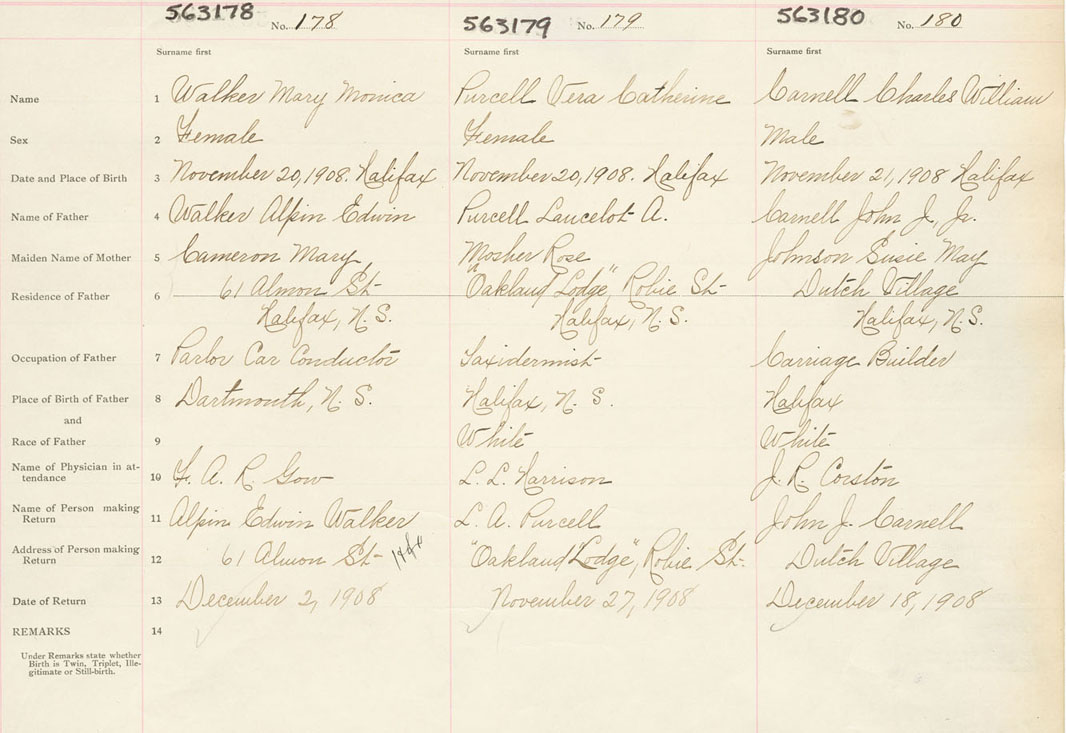 563178 No. 178 563179 No. 179 563180 No. 180
Surname first Surname first Surname first
Name 1 Walker Mary Monica Purcell Vera Catherine Carnell Charles William
Sex 2 Female Female Male
Date and Place of Birth 3 November 20, 1908. Halifax November 20, 1908. Halifax November 21, 1908 Halifax
Name of Father 4 Walker Alpin Edwin Purcell Lancelot A. Carnell John J, Jr.
Maiden Name of Mother 5 Cameron Mary Mosher Rose Johnson Susie May
Residence of Father 6 61 Almon St "Oakland Lodge" Robie St Dutch Village
Halifax, N. S. Halifax, N. S. Halifax, N. S.
Occupation of Father 7 Parlor Car Conductor Taxidermist Carriage Builder
Place of Birth of Father 8 Dartmouth, N. S. Halifax, N. S. Halifax
and
Race of Father 9 White White
Name of Physician in at-
tendance 10 F. A. R. Gow L. L. Harrison J. R. Corston
Name of Person making
Return 11 Alpin Edwin Walker L. A. Purcell John J. Carnell
Address of Person making
Return 12 61 Almon St "Oakland Lodge", Robie St. Dutch Village
Date of Return 13 December 2, 1908 November 27, 1908 December 18, 1908
REMARKS 14
Under Remarks state whether
Birth is Twin, Triplet, Ille-
gitimate or Still-birth.